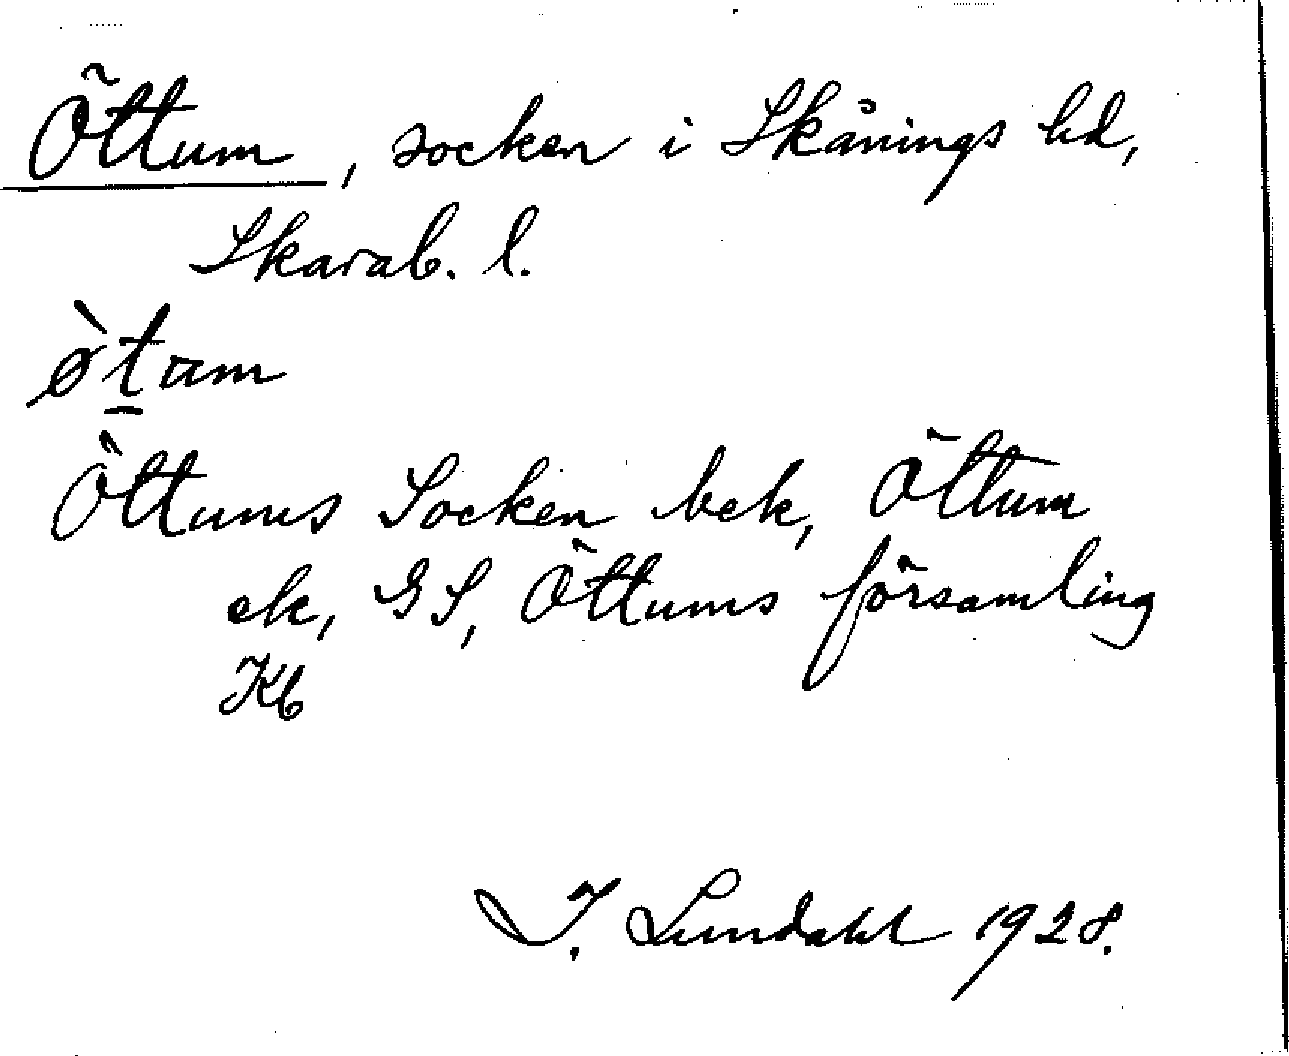 Öttum, socken i Skånings hd,
Skarab. l.
ø̀t̲am
Öttums Socken bek, Öttum
ek, GS, Öttums församling
Kb
I. Lundahl 1928.